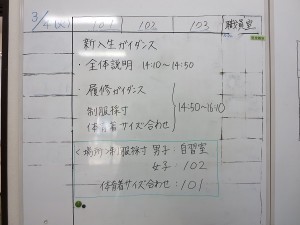 3/4(火) 101 102 103 職員室
新入生ガイダンス
・全体説明 14:10〜14:50
・履修ガイダンス
制服採寸
体育着サイズ合わせ
14:50〜16:10
<場所>制服採寸 男子:自習室
女子:102
体育着サイズ合わせ:101